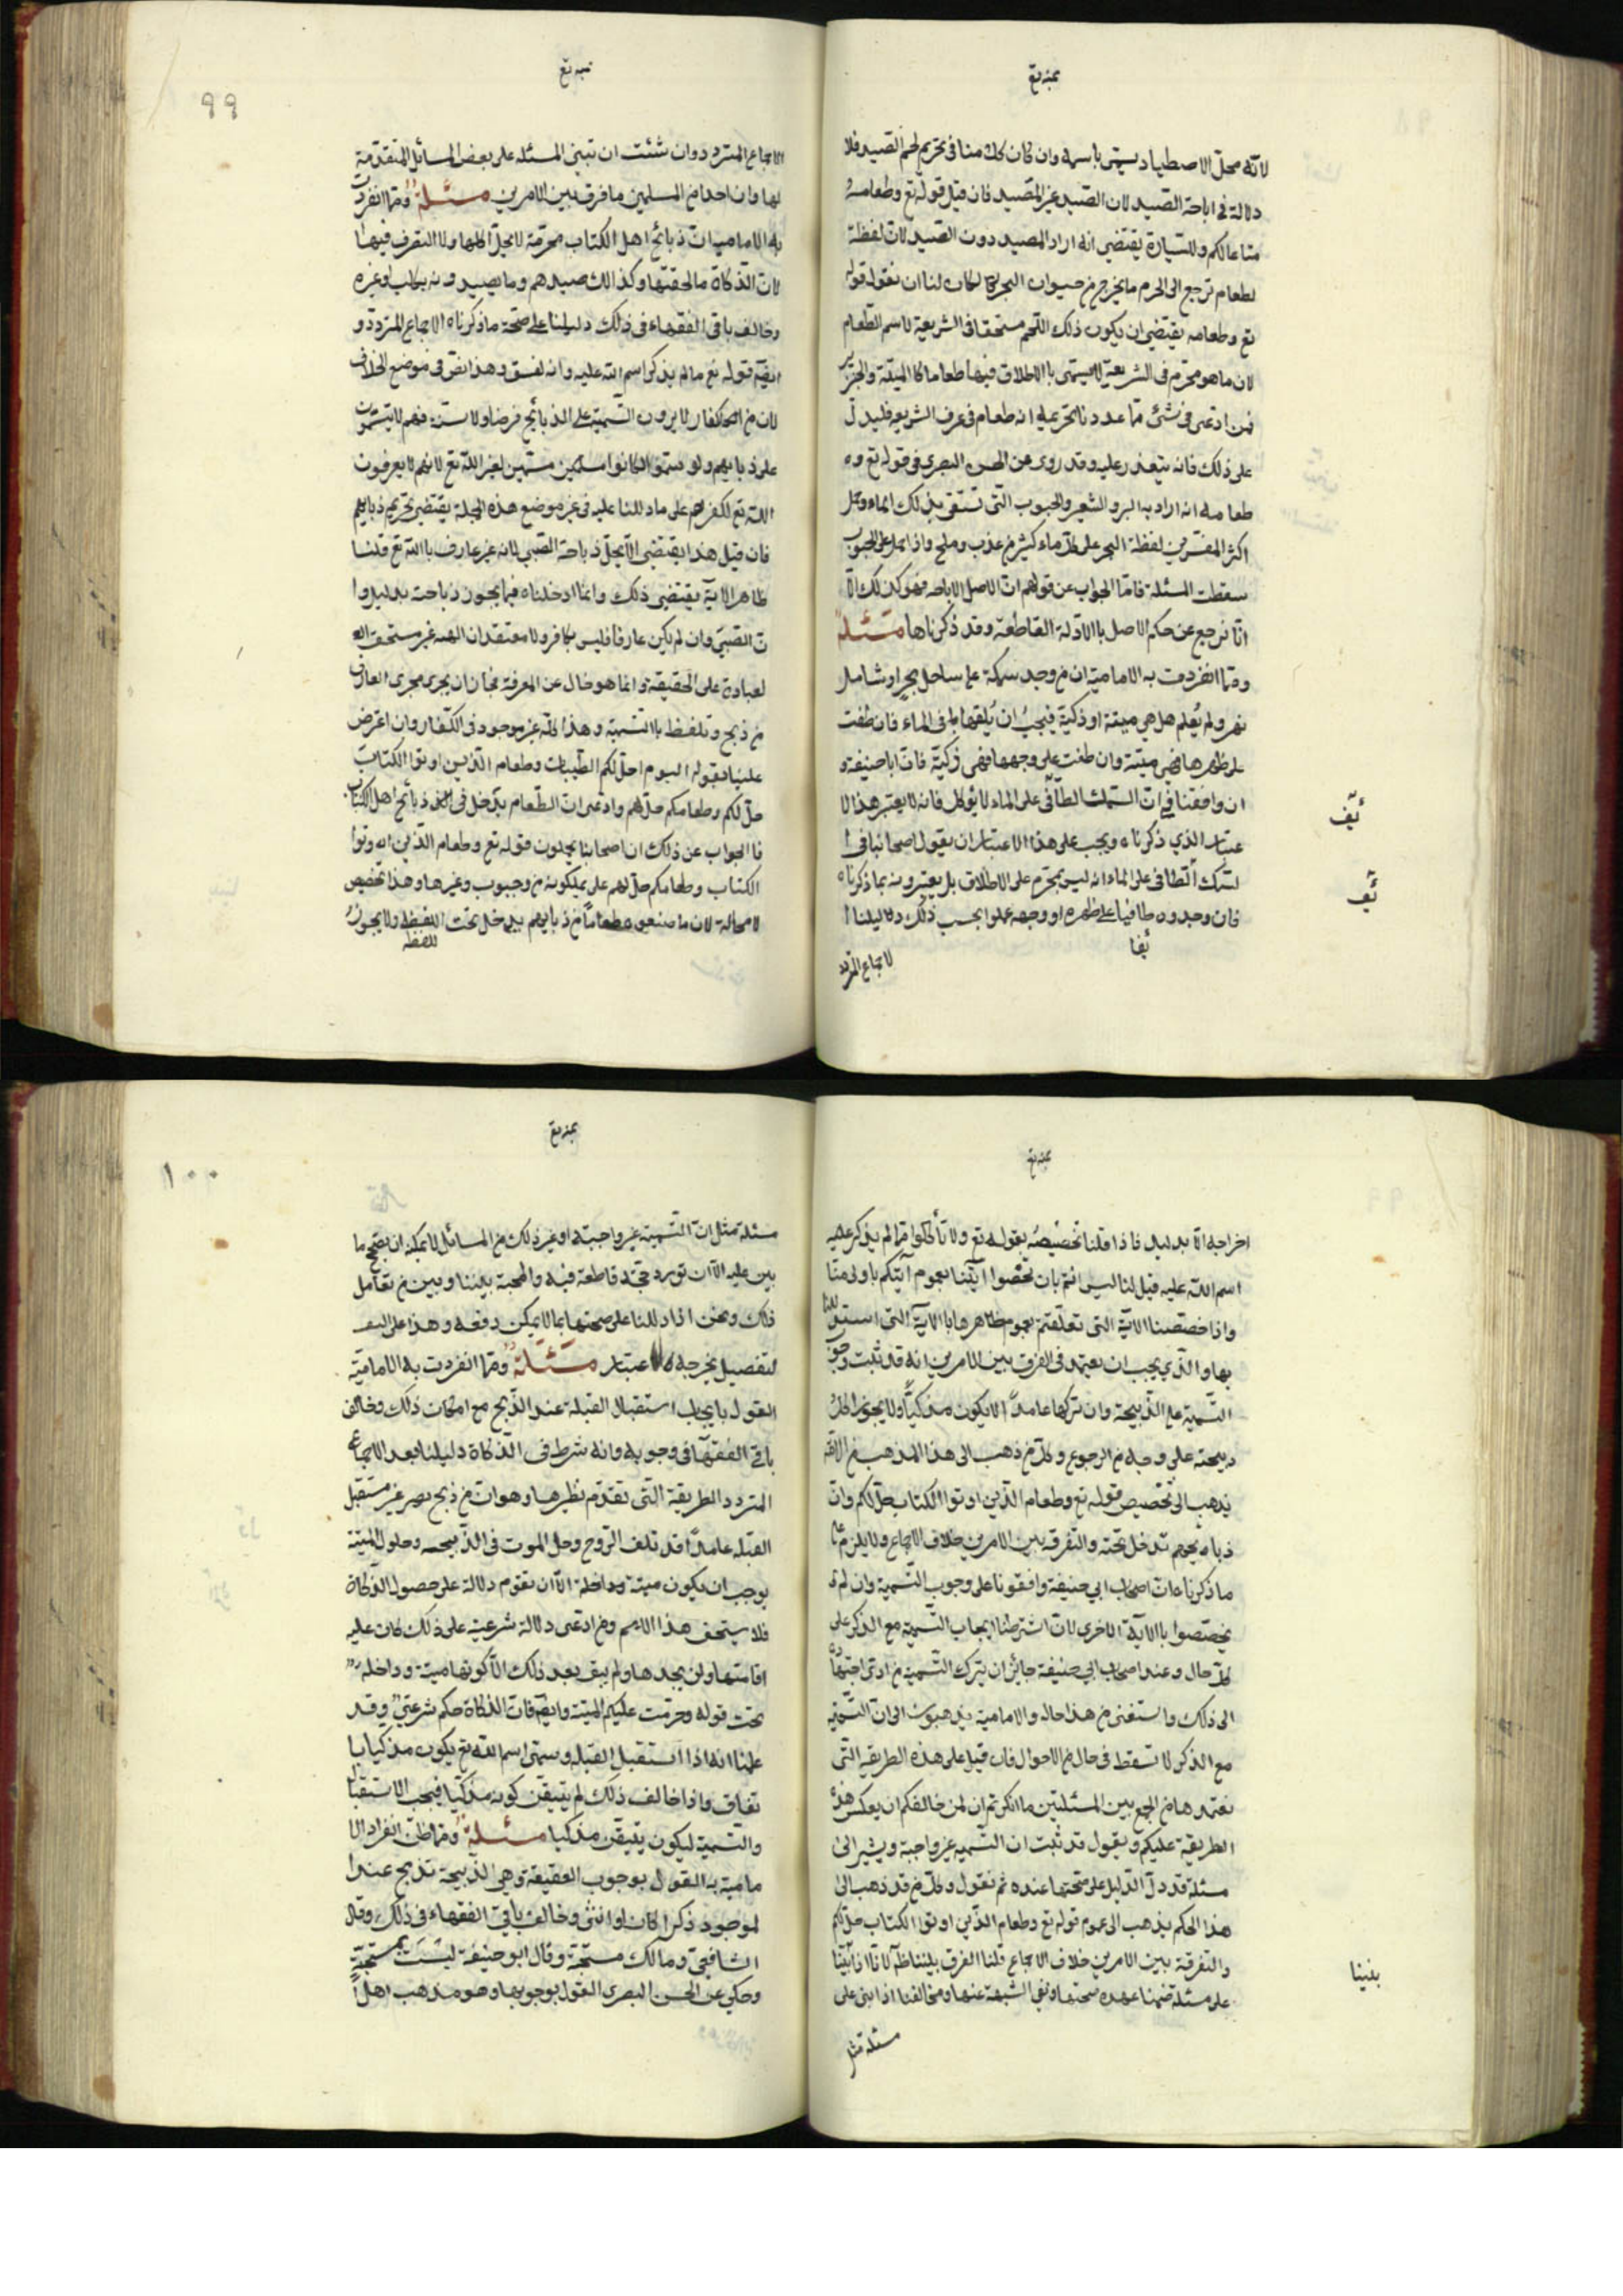 لانه محل الاصطياد يسمى باسمه وان كان كل منا فى تحريم لحم الصيد فلا
دلالة فى اباحة الصيد لان الصيد غير المصيد فان قيل قوله تع وطعامه
متاعا لكم وللسيارة يقتضى انه اراد المصيد دون الصيد لان لفظة
لطعام ترجع الى لحرم ما يخرج من حيوان البحر لكان لنا ان نقول قوله
تع وطعامه يقتضى ان يكون ذلك اللحم مستحقا فى الشريعة لاسم الطعام
لان ما هو محرم فى الشريعة لا يسمى باالاطلاق فيها طعاما كا الميتة والخنزير
فمن ادعى فى شئ مما عددنا تحريمه انه طعام فى عرف الشريعه فليدل
على ذلك فانه يتعذر عليه وقد روى عن الحسن البصرى فى قوله تع و
طعامه انه اراد به البر والشعير والحبوب التى تسقى بذلك الماء وحمل
اكثر المفسرين لفظة البحر على كل ماء كثير من عذب وملح واذا حمل على الحبوب
سقطت المسئلة فاما الجواب عن قولهم ان الاصل الاباحه فهو كذلك الا
انا نرجع عن حكم الاصل باالادلة القاطعة وقد ذكرناها مسئلة
ومما انفردت به الامامية ان من وجد سمكة على ساحل بحر او شاطئ
نهر ولم يعلم هل هى ميتة او ذكية فيجب ان يلقيها فى الماء فان طفت
على ظهرها فهى ميتة وان طفت على وجهها فهى زكية فان ابا حنيفة و
ان وافقنا فى ان السمك الطافى على الماء لا يؤكل فانه لا يعتبر هذا الا
عتبار الذي ذكرناه ويجب على هذا الاعتبار ان يقول اصحابنا فى ا
لسمك الطافى على الماء انه ليس بمحرم على الاطلاق بل يعتبرونه بما ذكرناه
فان وجدوه طافيا على ظهره او وجهه عملوا بحسب ذلك دليلنا ا
لاجماع المتردد
الاجماع المتردد وان شئت ان تبنى المسئلة على بعض المسائل المتقدمة
لها وان احدا من المسلمين ما فرق بين الامرين مسئلة ومما انفردت
به الامامية ان ذبائح اهل الكتاب محرمة لا يحل اكلها ولا التصرف فيها
لان الذكاة ما لحقتها وكذالك صيدهم وما يصيدونه بكلب او غيره
وخالف باقى الفقهاء فى ذلك دليلنا على صحة ما ذكرناه الاجماع المتردد و
ايضا قوله تع ما لم يذكر اسم الله عليه وانه لفسق وهذا نص فى موضع الخلاف
لان من الكفار لا يرون التسمية على الذبائح فرضا ولا سنة فهم لا يسمون
على ذبايحهم ولو سموا لكانوا مسمين لغير الله تع لانهم لا يعرفون
الله تع لكفرهم على ما دللنا عليه فى غير موضع هذه الجملة يقتضى تحريم ذبايحهم
فان قيل هذا يقتضى الا يحل ذباحة الصبي لانه غير عارف باالله تع قلنا
ظاهر الاية يقتضى ذلك وانما ادخلناه فيما يجوز ذباحته بدليل وا
ن الصبي وان لم يكن عارفا فليس بكافر ولا معتقد ان الهه غير مستحق اله
لعبادة على الحقيقة وانما هو خال عن المعرفة فجاز ان يجرى مجرى العارف
من ذبح وتلفظ باالتسمية وهذا كله غير موجود فى الكفار وان اعترض
علينا بقوله اليوم احل لكم الطيبات وطعام الذين اوتوا الكتاب
حل لكم وطعامكم حل لهم وادعى ان الطعام يدخل فى ذبائح اهل الكتاب
فا الجواب عن ذلك ان اصحابنا يحملون قوله تع وطعام الذين اوتوا
الكتاب وطعامكم حل لهم على يملكونه من حبوب وغيرها وهذا تخصيص
لا محالة لان ما صنعوه طعاما من ذبايحهم يدخل تحت اللفظ ولا يجوز
اخراجه الا بدليل فاذا قلنا تخصيصه بقوله تع ولا تأكلوا مما لم يذكر عليه
اسم الله عليه قيل لنا ليس انتم بان تخصوا ايتنا بعموم ايتكم باولى منا
واذا خصصنا الآية التى تعلقتم بعموم ظاهرها باالآية التى استدللنا
بها والذي يجب ان يعتمد فى الفرق بين الامرين انه قد ثبت وجوب
التسمية على الذبيحة وان تركها عامدا الا يكون مذكيا ولا يجوز اكل
ذبيحته على وجه من الرجوع وكل من ذهب الى هذا المذهب من الامة
يذهب الى تخصيص قوله تع وطعام الذين اوتوا الكتاب حل لكم وان
ذبائحهم تدخل تحته والتفرقة بين الامرين خلاف الاجماع ولا يلزم على
ما ذكرنا ان اصحاب ابي حنيفة وافقونا على وجوب التسمية وان لم
يخصصوا باالآية الاخرى لانا اشترطنا ايجاب التسمية مع الذكر على
كل حال وعند اصحاب ابي حنيفة جائز ان يترك التسمية من ادى اجتهاده
الى ذلك واستفتى من هذا حاله والامامية يذهبون الى ان التسمية
مع الذكر لا تسقط فى حال من الاحوال فان قيل على هذه الطريقه التى
نعتمدها من الجمع بين المسئلتين ما انكرتم ان لمن خالفكم ان يعكس هذه
الطريقة عليكم ويقول قد ثبت ان التسمية غير واجبة ويشير الى
مسئلة قد دل الدليل على صحتها عنده ثم نقول وكل من قد ذهب الى
هذا الحكم يذهب الى عموم قوله تع وطعام الذين اوتوا الكتاب حل لكم
والتفرقة بين الامرين خلاف الاجماع قلنا الفرق بيننا ظاهر لانا اذا بنينا
على مسئلة ضمنا عهدة صحتها ونفى الشبهة عنها ومخالفنا اذا بنى على
مسئلة مثل
بنينا
مسئلة مثل ان التسمية غير واجبة او غير ذلك من المسائل لا يمكنه ان يصحح ما
بين عليه الا ان تورد حجة قاطعة فيه والمحبة بيننا وبين من تعامل
ذلك ونحن اذا دللنا على صحتها بما لا يمكن دفعه وهذا على الت
لتفصيل يخرجه الاعتبار مسئلة ومما انفردت به الامامية
القول بايجاب استقبال القبلة عند الذبح مع امكان ذلك وخالف
باقي الفقهاء فى وجوبه وانه شرط فى الذكاة دليلنا بعد الاجماع
المتردد الطريقة التى تقدم نظيرها وهو ان من ذبح بصر غير مستقبل
القبله عامدا قد تلف الروح وحل الموت فى الذبيحه وحلول الميتة
يوجب ان يكون ميتة وداخلة الا ان تقوم دلالة على حصول الذكاة
فلا يستحق هذا الاسم ومن ادعى دلالة شرعية على ذلك كان عليه
اقامتها ولن يجدها ولم يبق بعد ذلك الا كونها ميتة وداخلة
تحت قوله وحرمت عليكم الميتة وايضا فان الذكاة حكم شرعي وقد
علمنا انه اذا استقبل القبله وسمى اسم الله تع يكون مذكيا با
تفاق واذا خالف ذلك لم يتيقن كونه مذكيا فيجب الاستقبال
والتسمية ليكون يتيقن مذكيا مسئلة ومما ظن انفراد الا
مامية به القول بوجوب العقيقة وهي الذبيحة تذبح عند ا
لموصود ذكرا كان او انثى وخالف باقي الفقهاء فى ذلك وقال
الشافعي ومالك مستحبة وقال ابو حنيفة ليست بمستحبة
وحكي عن الحسن البصرى القول بوجوبها وهو مذهب اهل ا
٩٩
١٠٠